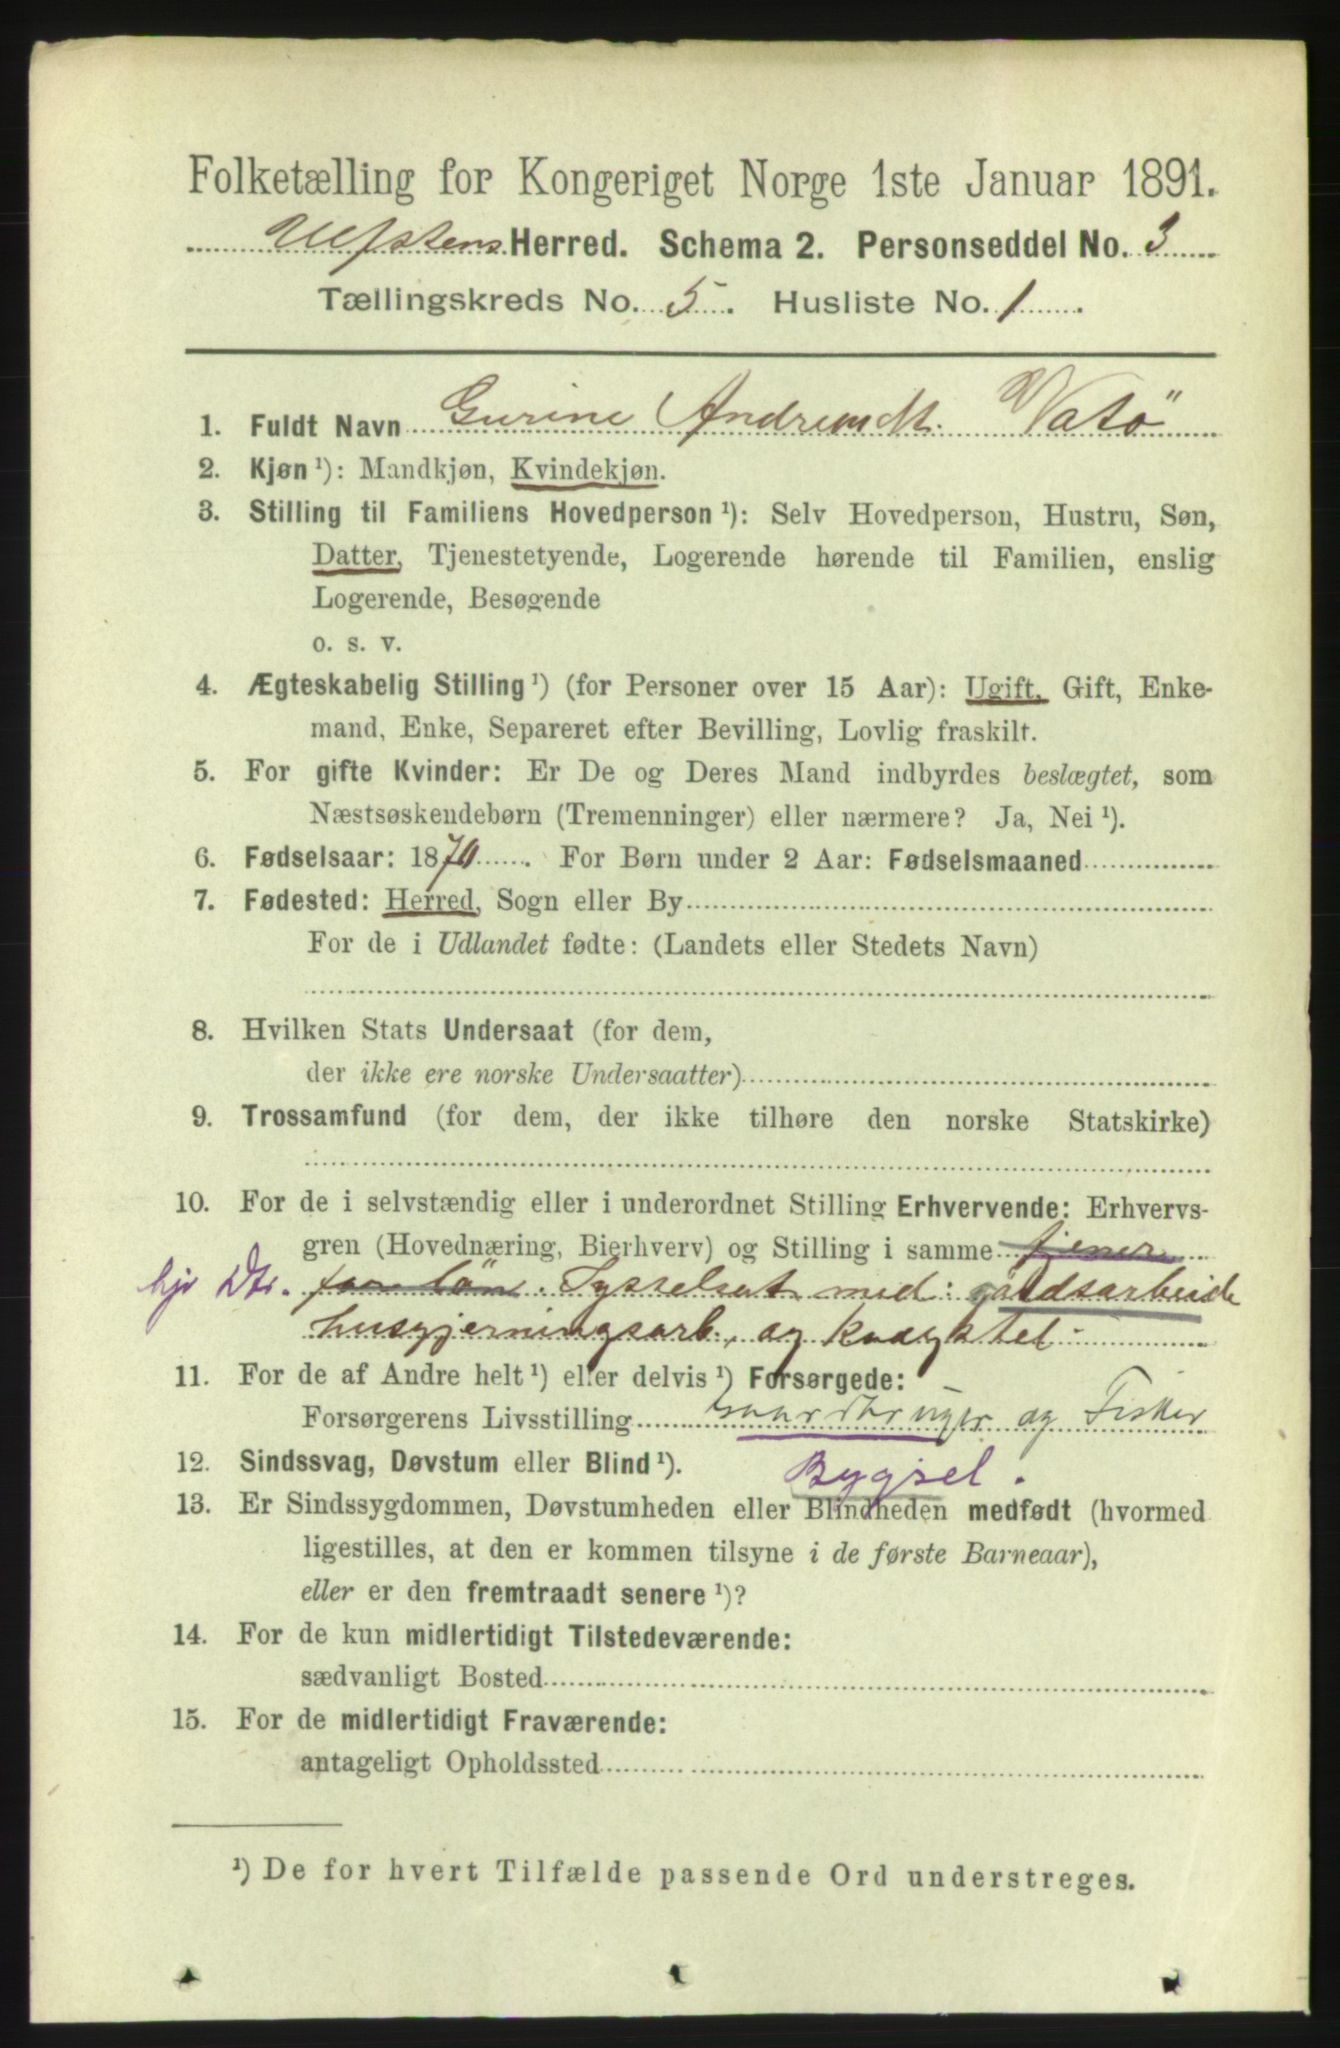 Folketælling for Kongeriget Norge 1ste Januar 1891.
Ulfstens Herred. Schema 2. Personseddel No. 3
Tællingskreds No. 5. Husliste No. 1.
1. Fuldt Navn Gurine Andreasdt. Vatö
2. Kjøn ¹): Mandkjøn, Kvindekjøn.
3. Stilling til Familiens Hovedperson ¹): Selv Hovedperson, Hustru, Søn,
Datter, Tjenestetyende, Logerende hørende til Familien, enslig
Logerende, Besøgende
o. s. v.
4. Ægteskabelig Stilling ¹) (for Personer over 15 Aar): Ugift, Gift, Enke-
mand, Enke, Separeret efter Bevilling, Lovlig fraskilt.
5. For gifte Kvinder: Er De og Deres Mand indbyrdes beslægtet, som
Næstsøskendebørn (Tremenninger) eller nærmere? Ja, Nei ¹).
6. Fødselsaar: 1870. For Børn under 2 Aar: Fødselsmaaned
7. Fødested: Herred, Sogn eller By
For de i Udlandet fødte: (Landets eller Stedets Navn)
8. Hvilken Stats Undersaat (for dem,
der ikke ere norske Undersaatter)
9. Trossamfund (for dem, der ikke tilhøre den norske Statskirke)
10. For de i selvstændig eller i underordnet Stilling Erhvervende: Erhvervs-
gren (Hovednæring, Bierhverv) og Stilling i samme tjener
hjr Dtr. for løn. Sysselsat med: gaardsarbeide
husgjerningsarb. og kvægstel
11. For de af Andre helt ¹) eller delvis ¹) Forsørgede:
Forsørgerens Livsstilling Gaardbruger og Fisker
12. Sindssvag, Døvstum eller Blind ¹). Bygsel.
13. Er Sindssygdommen, Døvstumheden eller Blindheden medfødt (hvormed
ligestilles, at den er kommen tilsyne i de første Barneaar),
eller er den fremtraadt senere ¹)?
14. For de kun midlertidigt Tilstedeværende:
sædvanligt Bosted
15. For de midlertidigt Fraværende:
antageligt Opholdssted
¹) De for hvert Tilfælde passende Ord understreges.